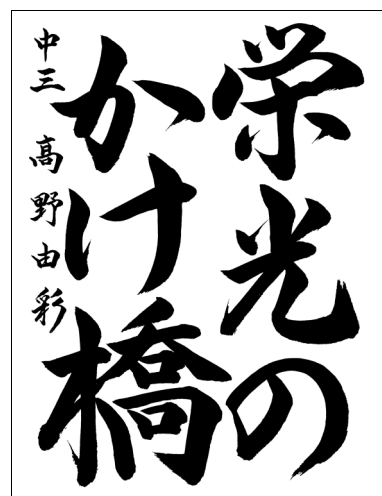 栄光の
かけ橋
中三 髙野由彩